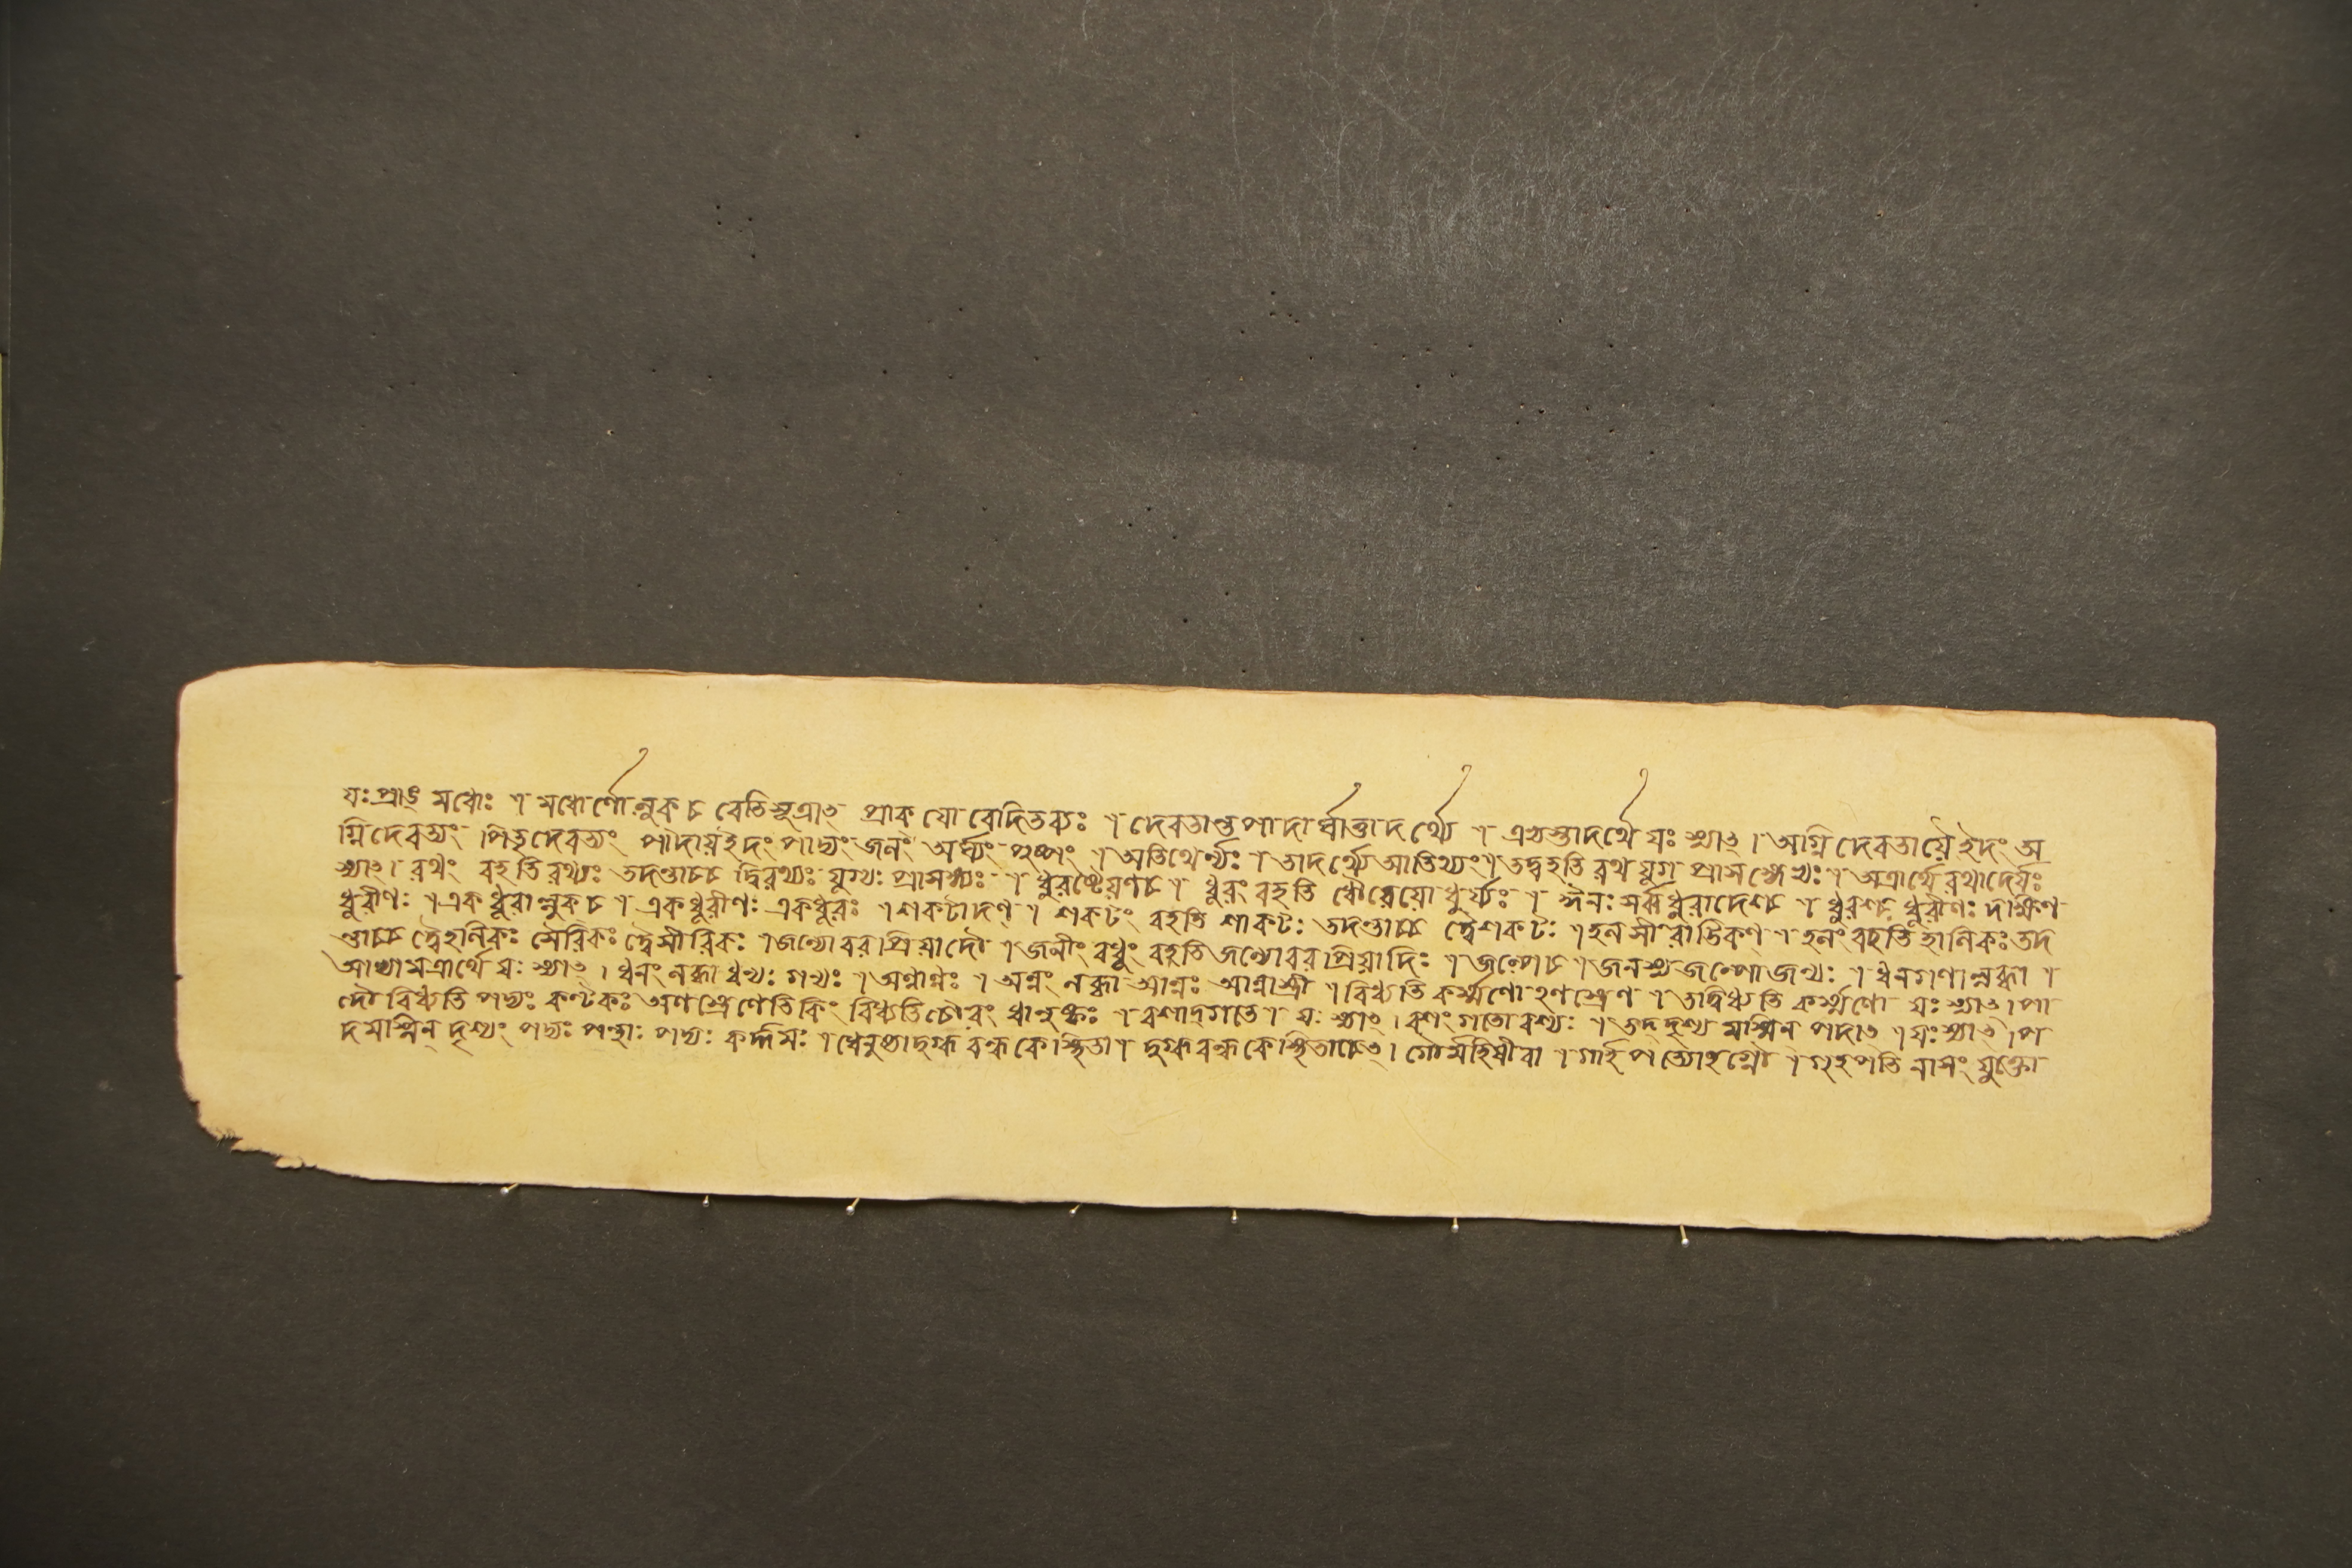 যঃ প্রাঙ্ মধোঃ । মধোর্ণো লুক্ চ বেতি সূত্রাৎ প্রাক্ যো বেদিতব্যঃ । দেবতান্তপাদার্ঘাত্তাদর্থ্যে । এভ্যস্তাদর্থে যঃ স্যাৎ । অগ্নিদেবতায়ৈ ইদং অ
গ্নিদেবত্যং পিতৃদেবত্যং পাদায় ইদং পাদ্যং জলং অর্ঘ্যং পুষ্পং । অতিথের্ণ্যঃ । তাদর্থ্যে আতিথ্যং । তদ্বহতি রথযুগপ্রাসঙ্গেভ্যঃ । অত্রার্থে রথাদের্যঃ
স্যাৎ । রথং বহতি রথ্যঃ তদন্তাচ্চ দ্বিরথ্যঃ যুগ্যঃ প্রাসঙ্গ্যঃ । ধুরষ্ণেয়ণ্ চ । ধুরং বহতি ধৌরেয়ো ধুর্য্যঃ । ঈনঃ সর্ব্বধুরাদেশ্চ । ধুরশ্চ ধুরীণঃ দক্ষিণ
ধুরীণঃ । একধুরাল্লুক্ চ । একধুরীণঃ একধুরঃ । শকটাদণ্ । শকটং বহতি শাকটঃ তদন্তাচ্চ দ্বৈশকটঃ । হলসীরাত্তিকণ্ । হলং বহতি হালিকঃ তদ
ন্তাচ্চ দ্বৈহালিকঃ সৈরিকঃ দ্বৈসীরিকঃ । জন্যো বরপ্রিয়াদৌ । জনীং বধূং বহতি জন্যো বরপ্রিয়াদিঃ । জল্পে চ । জনস্য জল্পো জন্যঃ । ধনগণাল্লব্ধা ।
আভ্যামত্রার্থে যঃ স্যাৎ । ধনং লব্ধা ধন্যঃ গণ্যঃ । অন্নাণ্ণঃ । অন্নং লব্ধা আন্নঃ আন্না স্ত্রী । বিধ্যতি কর্ম্মণো ঽণস্ত্রেণ । তদ্বিধ্যতি কর্ম্মণো যঃ স্যাৎ । পা
দৌ বিধ্যতি পদ্যঃ কণ্টকঃ অণস্ত্রেণেতি কিং বিধ্যতি চৌরং ধানুষ্কঃ । বশাদ্গতে । যঃ স্যাৎ । বশং গতো বশ্যঃ । তদ্ দৃশ্যমস্মিন্ পদাৎ । যঃ স্যাৎ । প
দমস্মিন্ দৃশ্যং পদ্যঃ পন্থাঃ পদ্যঃ কর্দ্দমঃ । ধেনুষ্যা দুগ্ধবন্ধকে স্থিতা । দুগ্ধবন্ধকে স্থিতা চেৎ । গৌর্মহিষী বা । গার্হপত্যোঽগ্নৌ । গৃহপতিনা সংযুক্তো